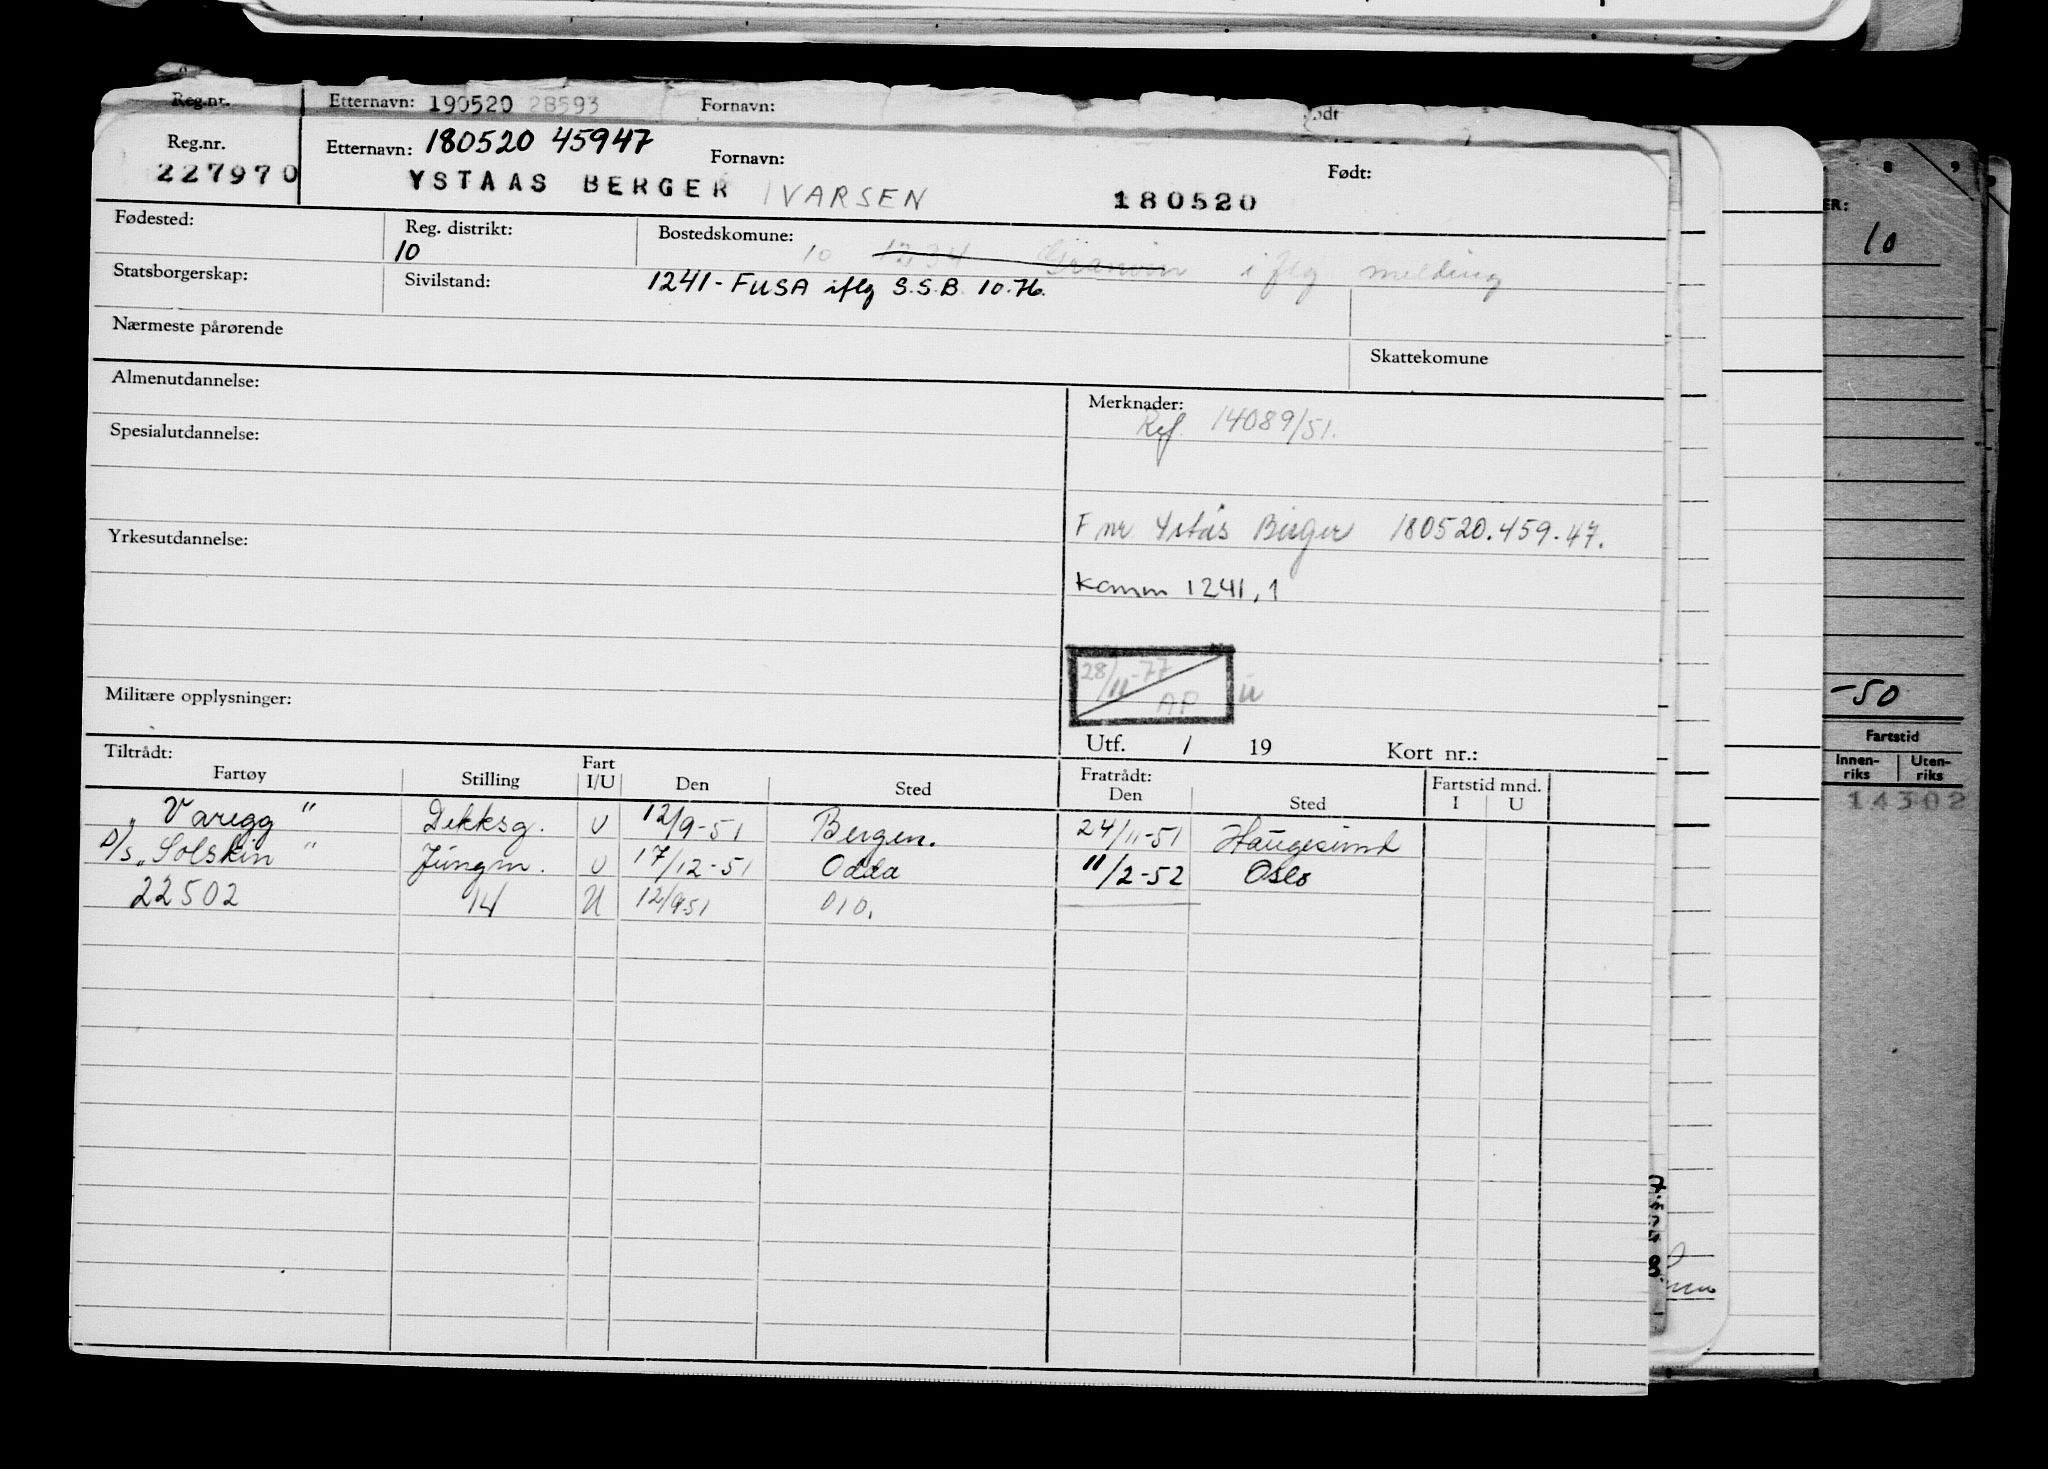 Reg.nr. Etternavn: 190520 28593 Fornavn:
Reg.nr. Etternavn: 180520 45947 Fornavn: Født:
227970 YSTAAS BERGER IVARSEN 180520
Fødested: Reg. distrikt: Bostedskomune:
10 10 1234 Granvin iflg melding
Statsborgerskap: Sivilstand: 1241-FUSA iflg S.S.B. 10.76.
Nærmeste pårørende
Skattekomune
Almenutdannelse: Merknader:
Ref. 14089/51.
Spesialutdannelse:
F nr Ystås Birger 180520.459.47.
Yrkesutdannelse:
Komm 1241,1
28/11-77
AP
Militære opplysninger:
Utf. / 19 Kort nr.:
Tiltrådt: Fratrådt:
Fartøy Stilling Fart I/U Den Sted Den Sted Fartstid mnd. I U
"Varegg" Dekksg. U 12/9-51 Bergen. 24/11-51 Haugesund
D/s "Solskin" Jungm. U 17/12-51 Odda 11/2-52 Oslo
22502 14 U 12/9 51 010.
ER:
10
-50
Fartstid
Innen-riks Uten-riks
14302